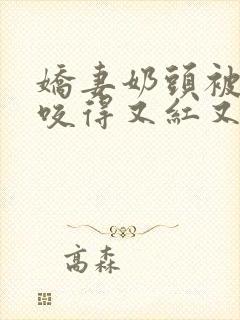 嬌妻奶頭被
咬得又紅又
高森